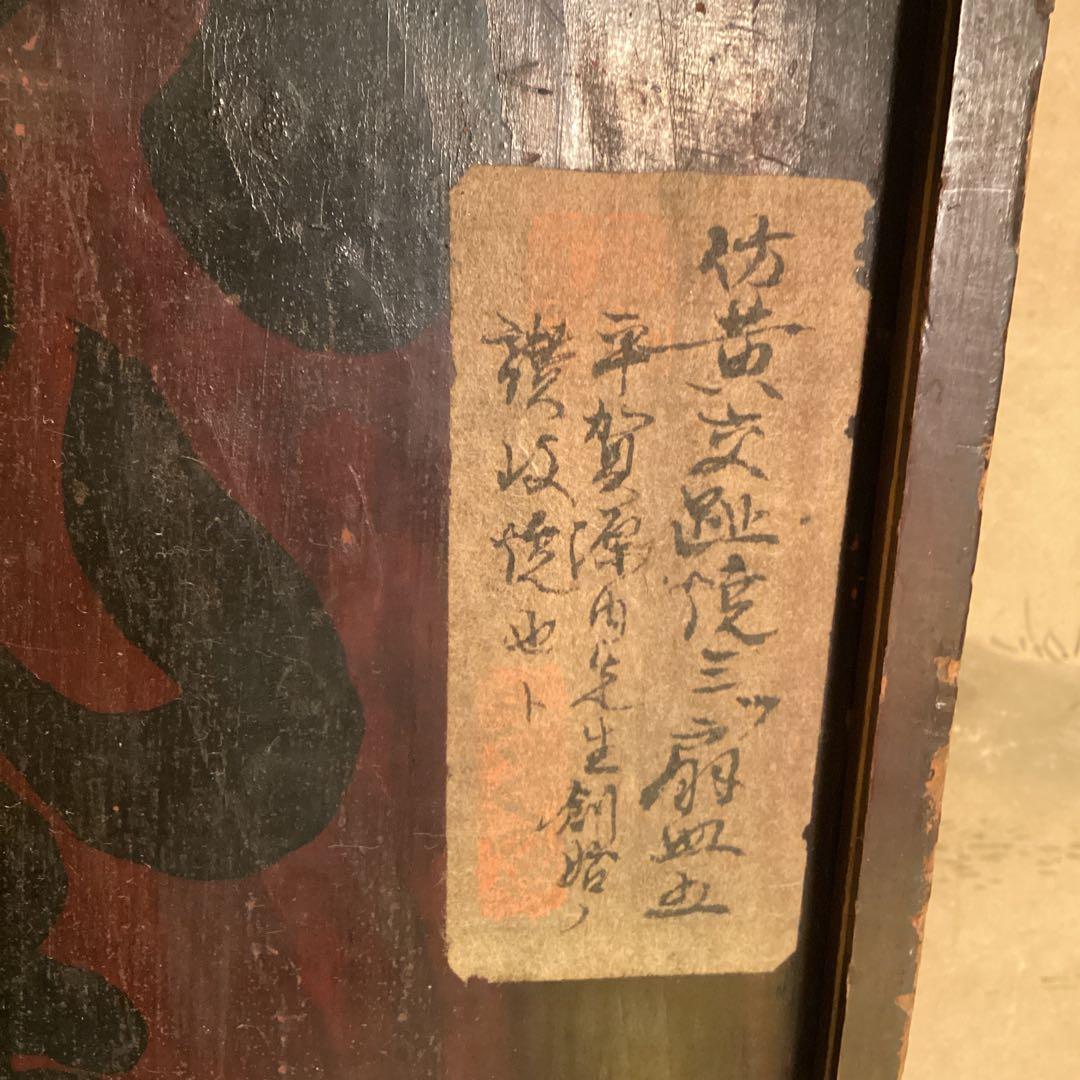 仿黄交趾焼三ツ扇皿五
平賀源内先生創始ノ
讃岐焼也ト